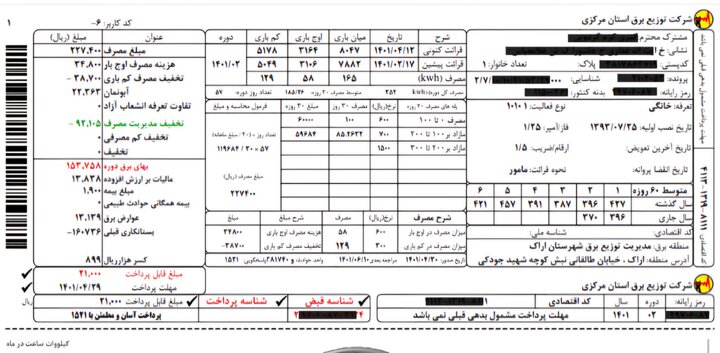 شرکت توزیع برق استان مرکزی
کد کاربر: ۶-
۱
مشترک محترم
نشانی:
کدپستی:
پلاک:
خانوار: ۱
پرونده:
شناسایی:
۲/۷/
رمز رایانه:
بدنه کنتور:
تعرفه: خانگی
نوع فعالیت: ۱۰۱۰۱
تاریخ نصب اولیه: ۱۳۹۳/۰۷/۲۵
فاز آمپر: ۱/۲۵
تاریخ آخرین تعویض:
ارقام/ضریب: ۱/۵
تاریخ انقضا پروانه:
نحوه قرائت: مامور
متوسط ۶۰ روزه ۱ ۲ ۳ ۴ ۵ ۶
سال گذشته ۴۲۷ ۳۹۶ ۳۸۷ ۳۹۱ ۴۵۷ ۴۲۱
سال جاری ۳۹۶ ۳۷۰
کد اقتصادی:
شناسه ملی:
منطقه برق: مدیریت توزیع برق شهرستان اراک
آدرس منطقه: اراک ، خیابان طالقانی نبش کوچه شهید جودکی
شرح تاریخ میان باری اوج باری کم باری دوره
قرائت کنونی ۱۴۰۱/۰۴/۱۲ ۸۰۴۷ ۳۱۶۴ ۵۱۷۸
قرائت پیشین ۱۴۰۱/۰۲/۱۷ ۷۸۸۲ ۳۱۰۶ ۵۰۴۹ ۱۴۰۱/۰۲
مصرف (kwh) ۱۶۵ ۵۸ ۱۲۹
مصرف کل دوره: ۳۵۲
مصرف ۳۰ روز: ۱۸۵/۲۶
تعداد روز دوره: ۵۷
پله های مصرف ۳۰ روزه نرخ(ریال) مصرف ۳۰ روز مبلغ ۳۰ روز فرمول محاسبه و مبلغ
۰ تا ۱۰۰ ۶۰۰ ۱۰۰ ۶۰۰۰۰
مازاد بر ۱۰۰ تا ۲۰۰ ۷۰۰ ۸۵.۲۶۳۲ ۵۹۶۸۴
مازاد بر ۲۰۰ تا ۳۰۰ ۱۵۰۰
تعداد روز × (۳۰ / مبلغ ماهانه)
۱۱۹۶۸۴ / ۳۰ × ۵۷
مبلغ مصرف (ریال)
۲۲۷۴۰۰
شرح مصرف نرخ(ریال) مصرف شرح مبلغ مبلغ(ریال)
میزان مصرف در اوج بار ۶۰۰ ۵۸ هزینه مصرف اوج بار ۳۴۸۰۰
میزان مصرف در کم باری ۳۰۰ ۱۲۹ تخفیف مصرف کم باری -۳۸۷۰۰
تاریخ صدور: ۱۴۰۱/۰۴/۲۰
مراجعه بعدی: ۱۴۰۱/۰۶/۱۰
واحد حوادث: ۳۸۱۷۴۰
پاسخگویی: ۱۵۲۱
عنوان مبلغ (ریال)
مبلغ مصرف ۲۲۷,۴۰۰
هزینه مصرف اوج بار ۳۴,۸۰۰
تخفیف مصرف کم باری ۳۸,۷۰۰-
آبونمان ۲۲,۳۶۳
تفاوت تعرفه انشعاب آزاد ۰
تخفیف مدیریت مصرف ۹۲,۱۰۵-
تخفیف کم مصرفی ۰
تخفیف ۰
بهای برق دوره ۱۵۳,۷۵۸
مالیات بر ارزش افزوده ۱۳,۸۳۸
مبلغ بیمه ۱,۹۰۰
بیمه همگانی حوادث طبیعی ۰
عوارض برق ۱۳,۱۳۹
بستانکاری قبلی ۱۶۰۷۳۶-
کسر هزار ریال ۸۹۹
مبلغ قابل پرداخت ۲۱,۰۰۰
مهلت پرداخت ۱۴۰۱/۰۴/۲۹
مهلت پرداخت مشمول بدهی قبلی نمی باشد
کد اقتصادی: ۴۱۱۳-۱۳۹۸-۸۱۱۱
شرکت توزیع برق استان مرکزی
رمز رایانه: دوره سال کد اقتصادی
۰۲ ۱۴۰۱ مهلت پرداخت مشمول بدهی قبلی نمی باشد
شناسه قبض شناسه پرداخت مبلغ قابل پرداخت ۲۱,۰۰۰ ریال
پرداخت آسان و مطمئن با ۱۵۲۱
کیلووات ساعت در ماه